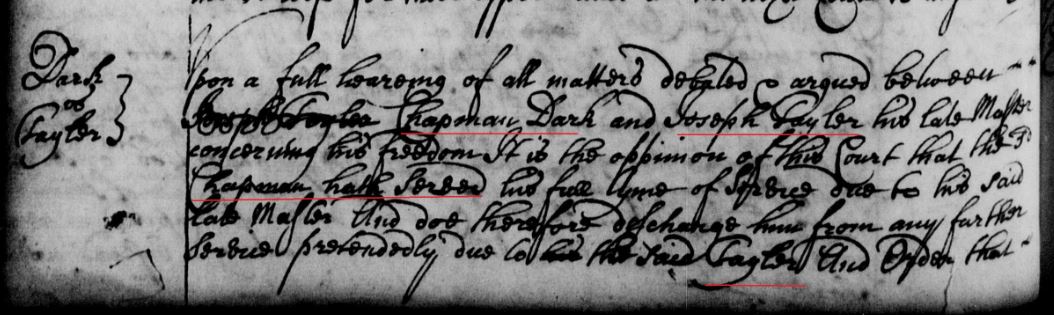 Dark
vs
Tayler
Upon a full heareing of all matters debated & argued between
Joseph Tayler Chapman Dark and Joseph Tayler his late Master
concerning his freedom It is the oppinion of this Court that the sd
Chapman hath Served his full tyme of Service due to his said
late Master And doe therefore discharge him from any further
Service pretendedly due to his the said Tayler And Order that